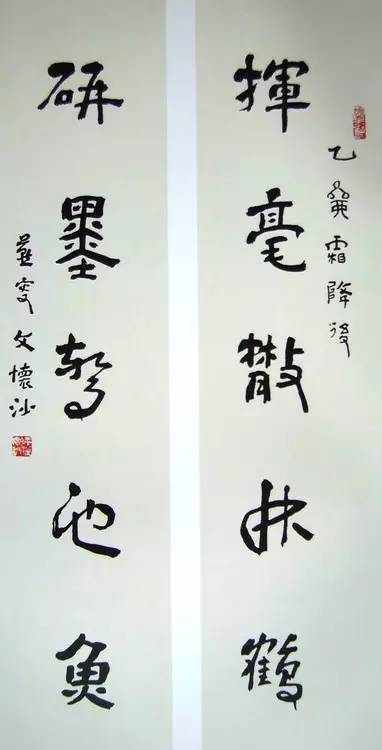 揮毫散林鶴
乙霜降後
研墨驚池魚
燕叟文懷沙